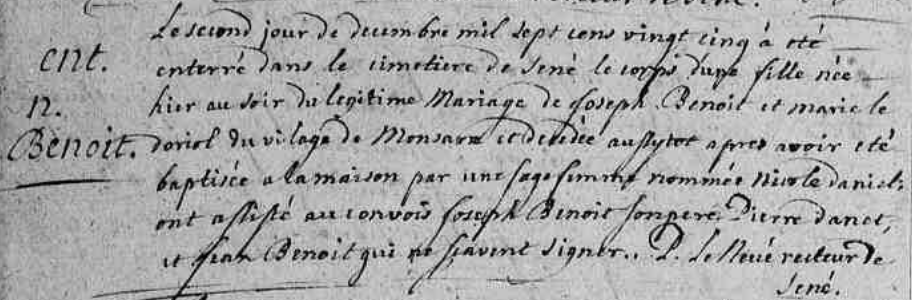 Le second jour de decembre mil sept cens vingt cinq à eté
ent.
enterré dans le cimetiere de Sené le corps d'une fille née
n.
hier au soir du legitime Mariage de Joseph Benoit et marie le
Benoit.
doriol du vilage de Monsara et decedée aussytot apres avoir eté
baptisée a la maison par une sage femme nommée Nicole daniel;
ont assisté au convois Joseph Benoit son pere, Pierre danet,
et Jean Benoit qui ne scavent signer.. P. Le Nevé recteur de
Sené.